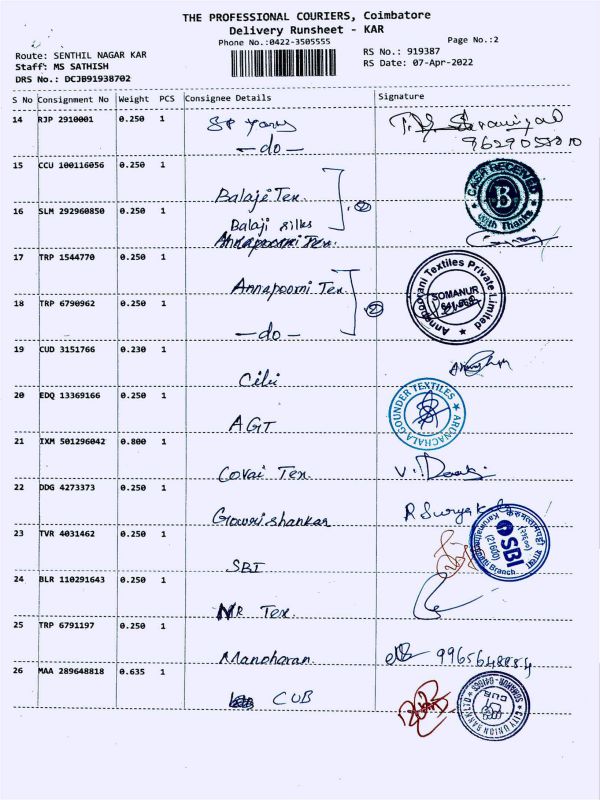 THE PROFESSIONAL COURIERS, Coimbatore
Delivery Runsheet - KAR
Phone No.:0422-3505555
Page No.:2
Route: SENTHIL NAGAR KAR
Staff: MS SATHISH
DRS No.: DCJB91938702
RS No.: 919387
RS Date: 07-Apr-2022
S No Consignment No Weight PCS Consignee Details Signature
14 RJP 2910001 0.250 1 SP
-do-
15 CCU 100116056 0.250 1
Balaji Tex.
CASH RECEIVED
B
With Thanks
16 SLM 292960850 0.250 1
Balaji silks
Annapoorni Tex.
17 TRP 1544770 0.250 1
Annapoorni Tex.
2
Annapoorani Textiles Private Limited
SOMANUR
18 TRP 6790962 0.250 1
-do-
2
19 CUD 3151766 0.230 1
20 EDQ 13369166 0.250 1
AGT
ARUNACHALA GOUNDER TEXTILES
21 IXM 501296042 0.800 1
Covai Tex.
22 DDG 4273373 0.250 1
Gowrishankar
R Suryakala
23 TVR 4031462 0.250 1
SBI
SBI
(21600)
Branch
24 BLR 110291643 0.250 1
NR Tex.
25 TRP 6791197 0.250 1
Manoharan
26 MAA 289648818 0.635 1
CUB
CITY UNION BANK LTD
CUB